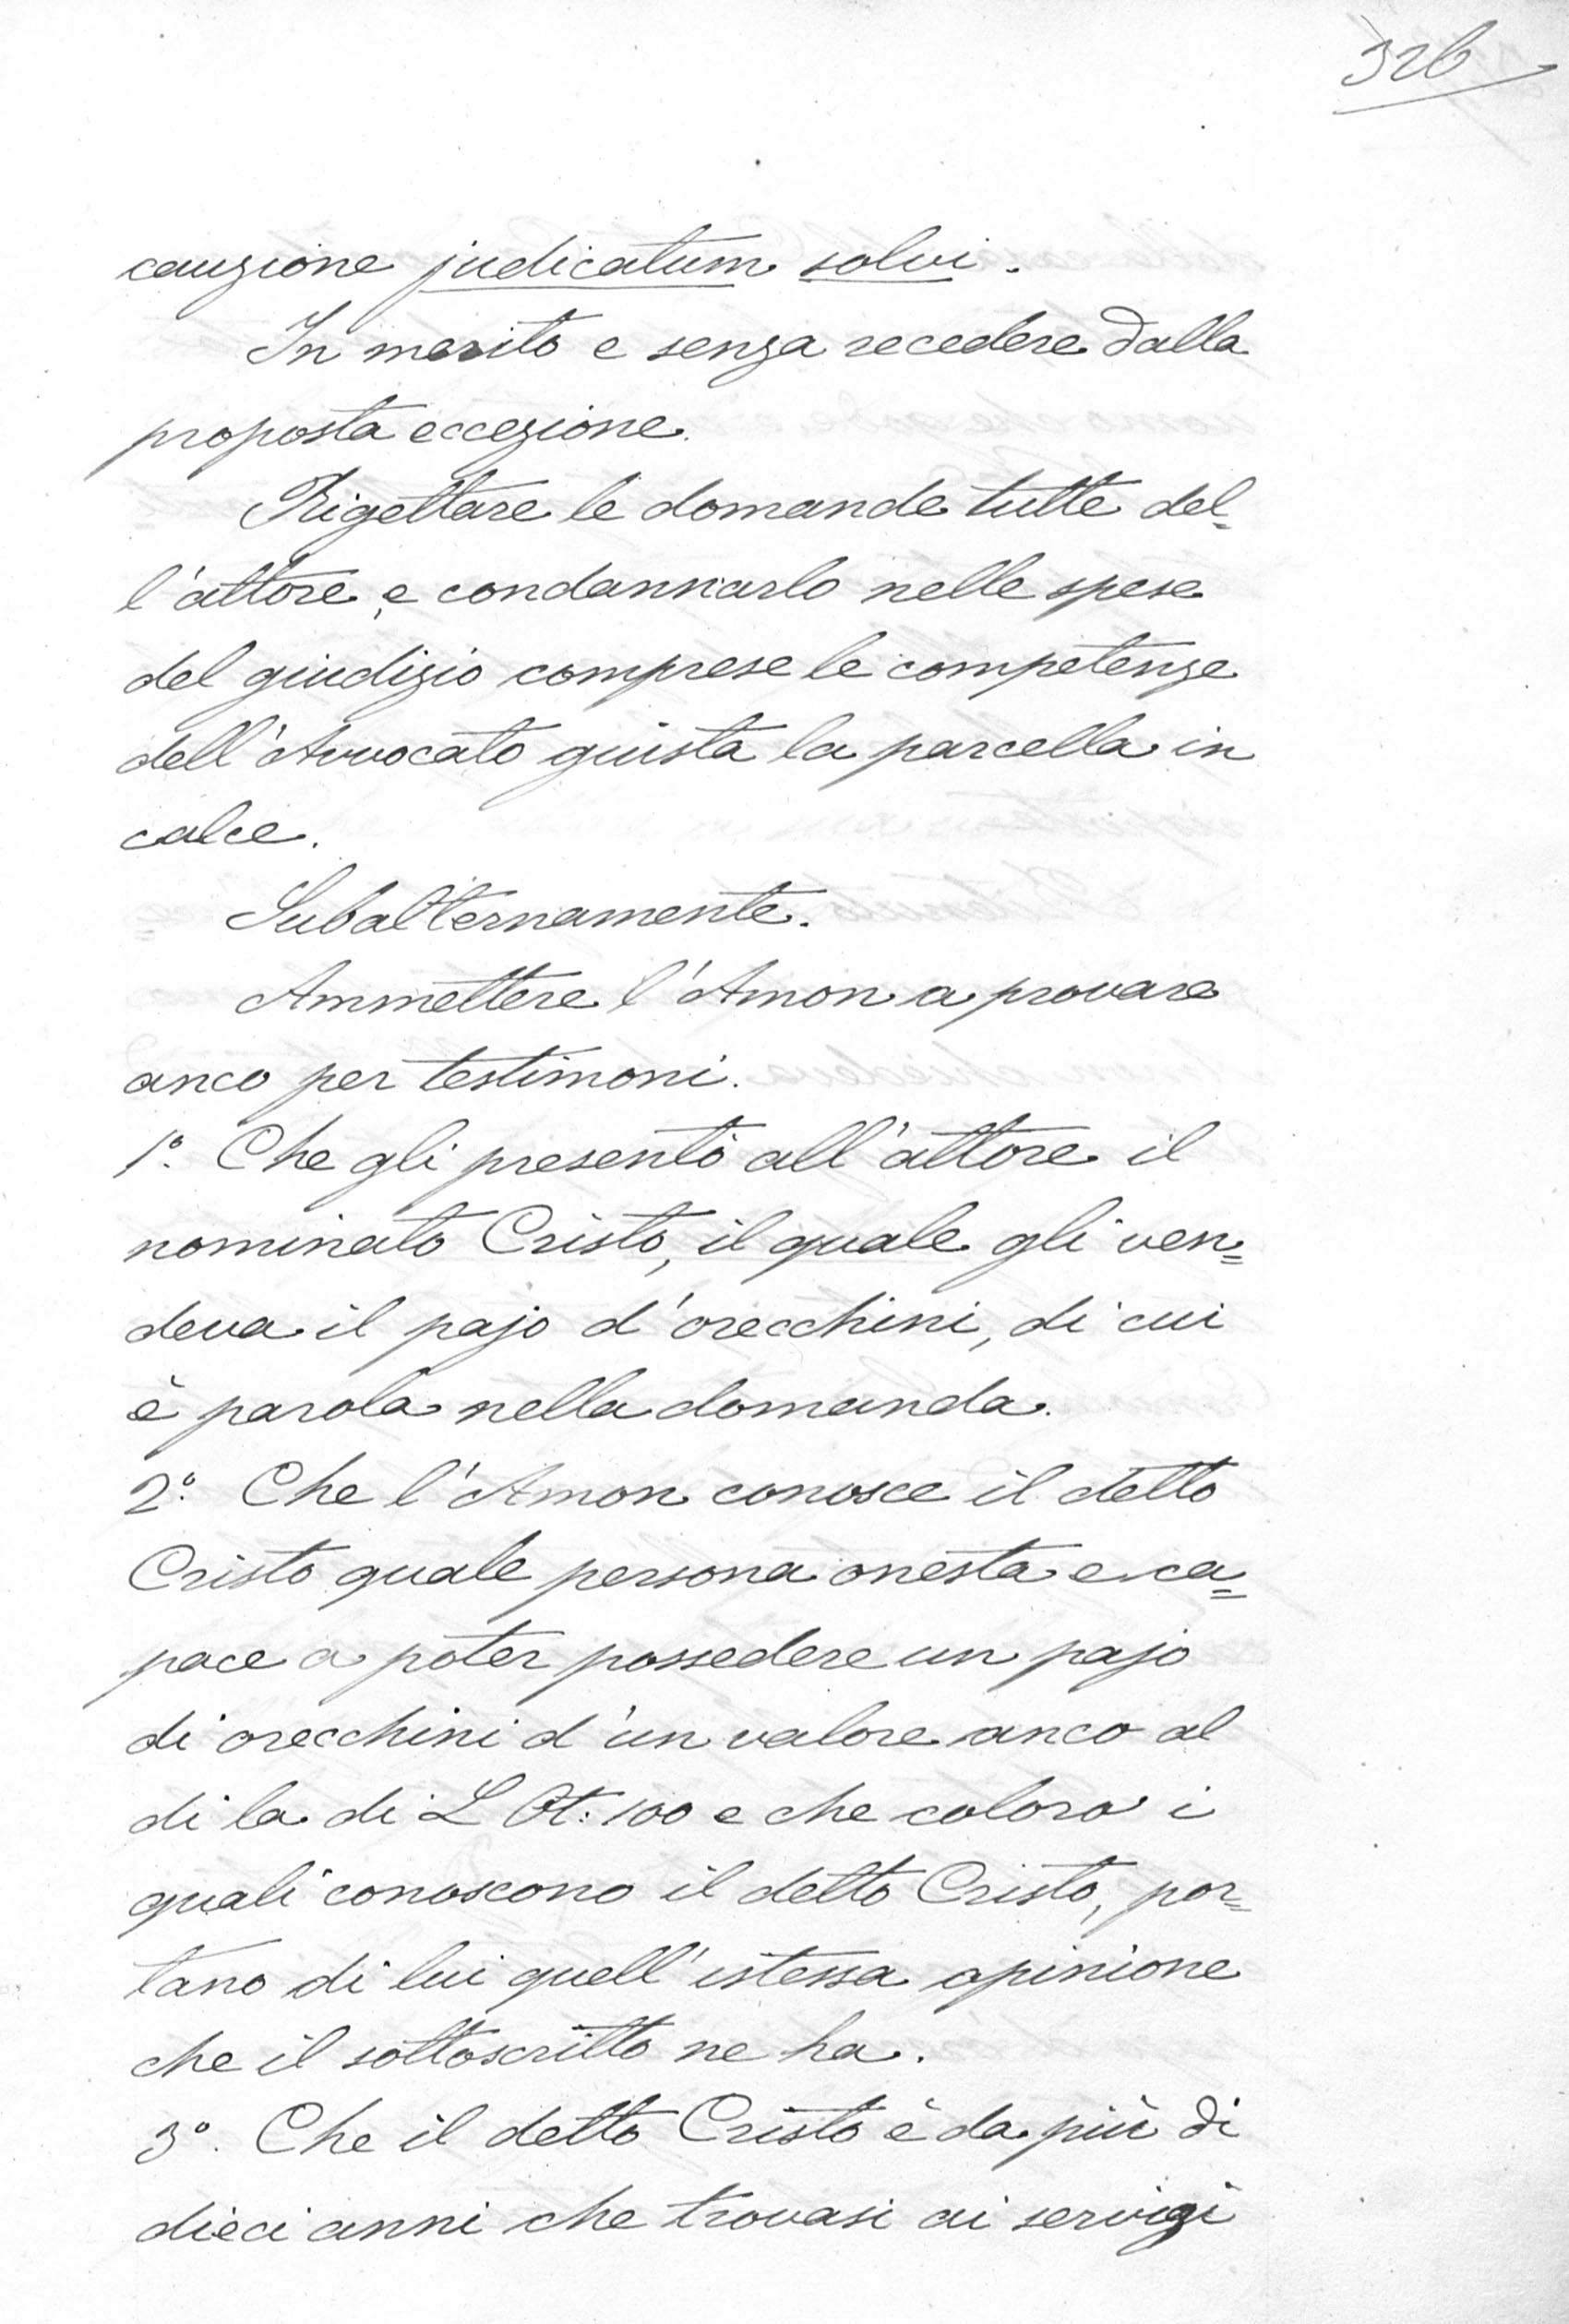 326
cauzione judicatum solvi.
In merito e senza recedere dalla
proposta eccezione.
Rigettare le domande tutte del=
l'attore e condannarlo nelle spese
del giudizio comprese le competenze
dell'Avvocato giusta la parcella in
calce.
Subalternamente.
Ammettere l'Amon a provare
anco per testimoni.
1º. Che gli presentò all'attore il
nominato Cristo, il quale gli ven=
deva il pajo d'orecchini, di cui
è parola nella domanda.
2º. Che l'Amon conosce il detto
Cristo quale persona onesta e ca=
pace a poter possedere un pajo
di orecchini d'un valore anco al
di la di L Ot: 100 e che coloro i
quali conoscono il detto Cristo, por=
tano di lui quell'istessa opinione
che il sottoscritto ne ha.
3º. Che il detto Cristo è da più di
dieci anni che trovasi ai servigi